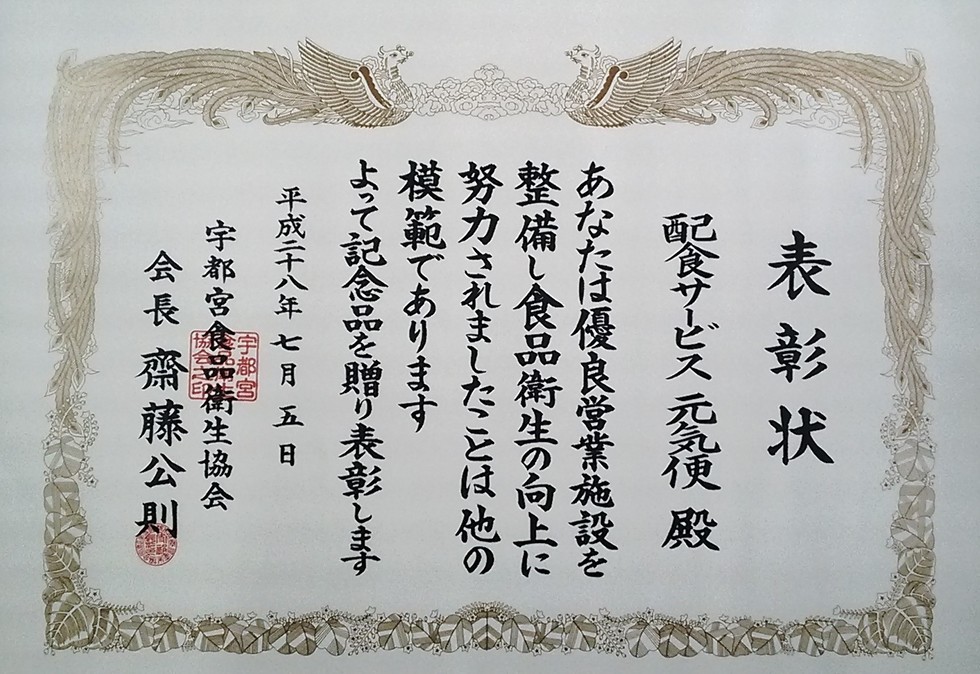 表彰状
配食サービス 元気便 殿
あなたは優良営業施設を
整備し食品衛生の向上に
努力されましたことは他の
模範であります
よって記念品を贈り表彰します
平成二十八年七月五日
宇都宮食品衛生協会
会長 齋藤公則
宇都宮
協会之印